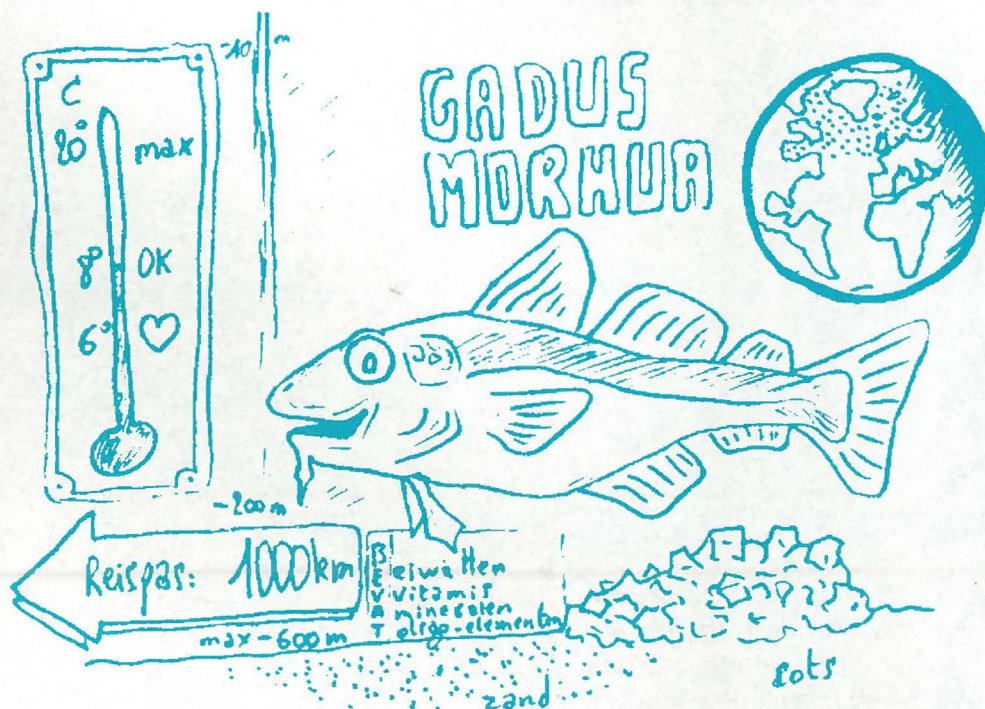 C
20° max
8° OK
6°
-10 m
GADUS
MORHUA
-200 m
Reispas: 1000 km
max -600 m
BEVAT
eiwitten
vitamis
mineralen
oligo-elementen
zand
rots